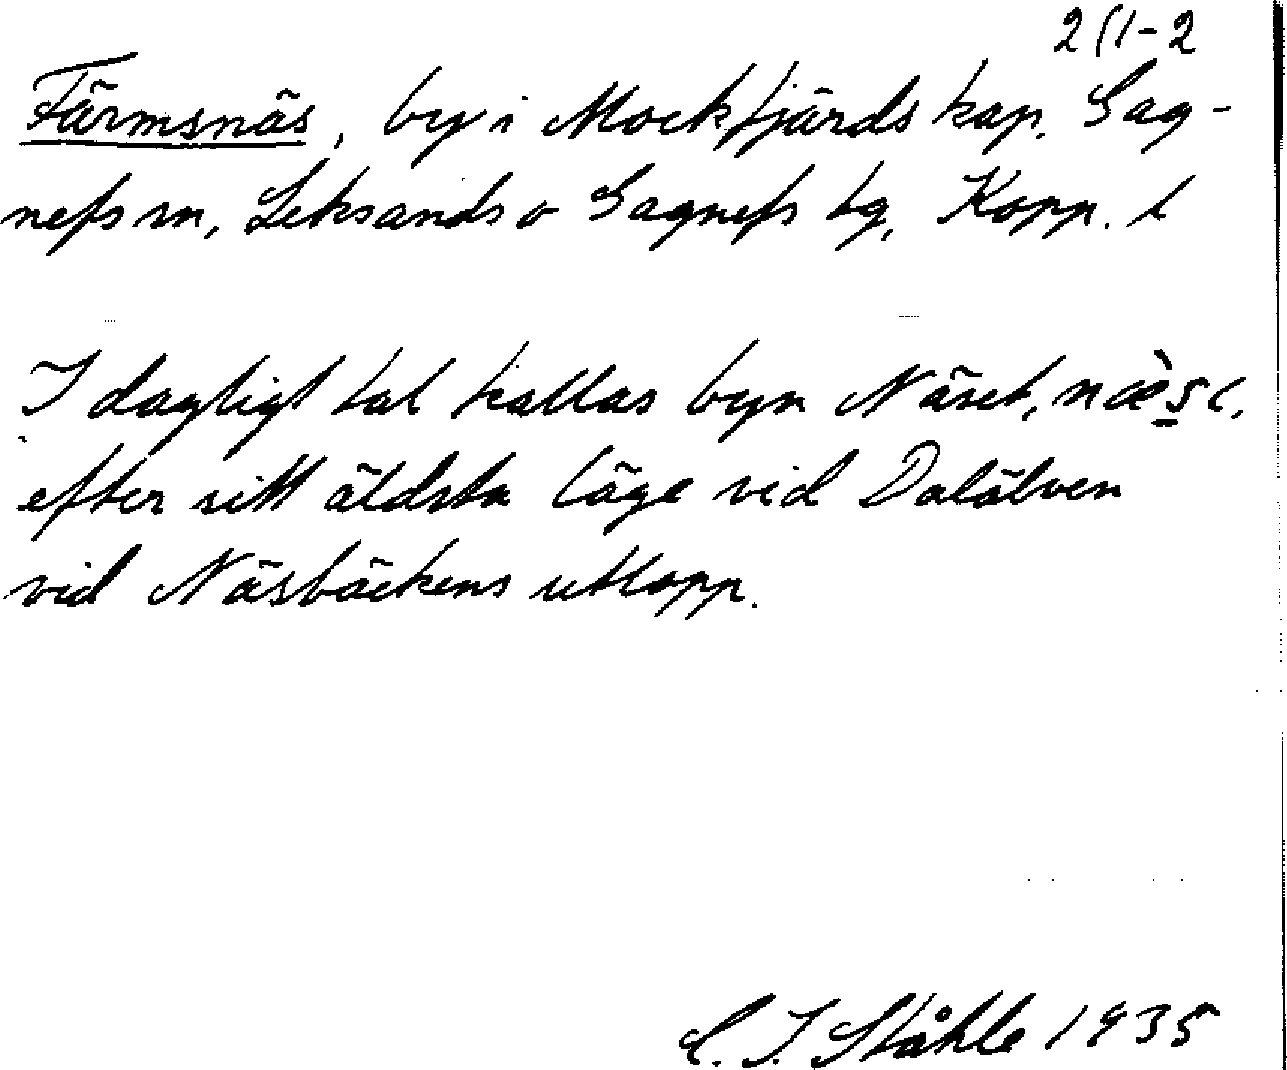 2(1-2
Färmsnäs, by i Mockfjärds kap. Gag-
nefs sn, Leksands o Gagnefs tg, Kopp. l
I dagligt tal kallas byn Näset,
efter sitt äldsta läge vid Dalälven
vid Näsbäckens utlopp.
C. I. Ståhle 1935